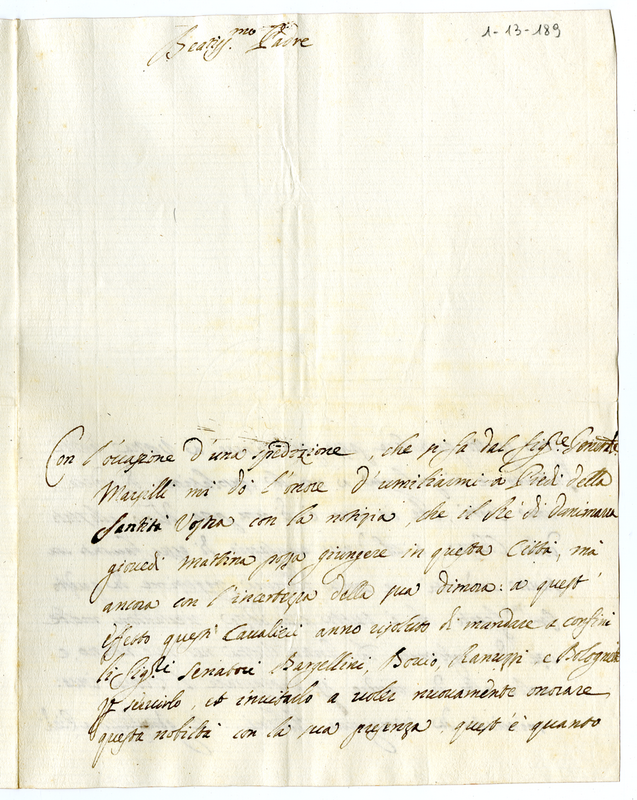 Beatiss.mo Padre
1-13-189
Con l'occazione d'una spedizione, che si fà dal Sig.re
Marsilli mi dò l'onore d'umiliarmi a Piedi della
Santità Vostra con la notizia, che il Rè di Danimarca
giovedì mattina possa giungere in questa Città, mà
ancora con l'incertezza della sua dimora: a quest'
effetto questi Cavalieri anno risoluto di mandare a confini
li Sig.ri Senatori Bargellini, Bovio, Ranuzzi e Bolognetti
per servirlo, et invitarlo a voler nuovamente onorare
questa nobiltà con la sua presenza, quest'è quanto